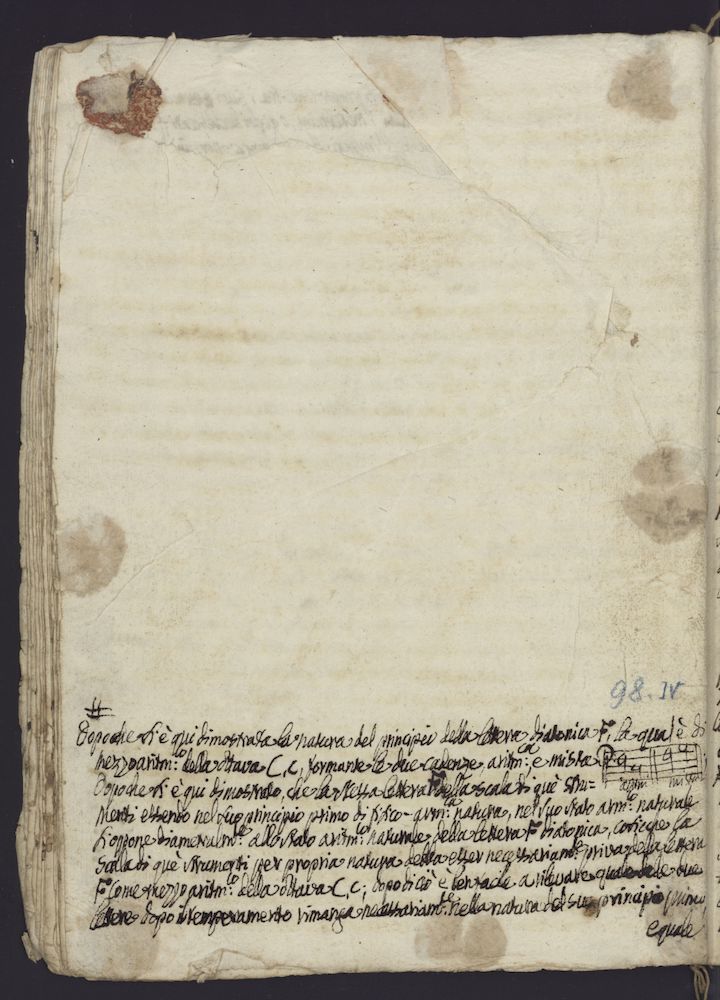 98. IV
#
Dopo che si è qui dimostrata la natura del principio della lettera diatonica F, la qual è di
mezzo aritm:co della ottava C, c, formante le due cadenze aritm:ca e mista
Dopo che si è qui dimostrato, che la stessa lettera F della scala di què stru=
menti essendo nel suo principio primo di fisico-arm:ca natura, nel suo stato arm:co naturale
si oppone diametralm:te allo stato aritm:co naturale della lettera F diatonica, cosicche la
scala di què strumenti per propria natura debba esser necessariam:te priva della lettera
F come mezzo aritm:co della ottava C, c; dopo di ciò è da vedere quale delle due
lettere dopo il temperamento rimanga necessariam:te nella natura del suo principio primo
e quale
aritm: mista